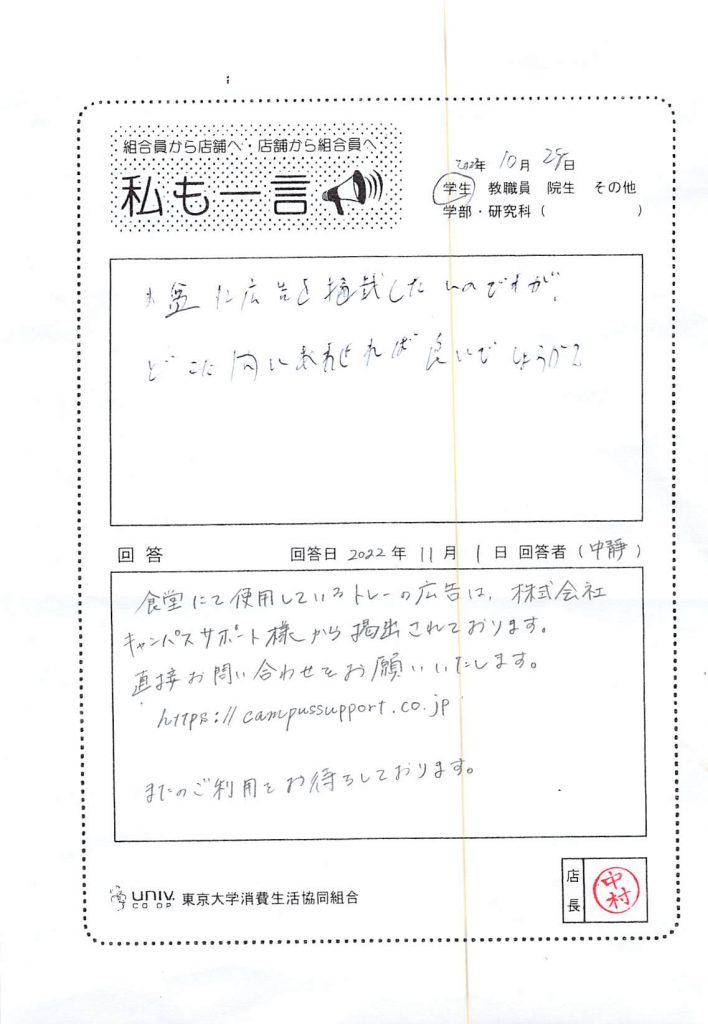 組合員から店舗へ・店舗から組合員へ
私も一言
2022年 10月 25日
学生 教職員 院生 その他
学部・研究科（ ）
お盆に広告を掲載したいのですが、
どこに問い合わせれば良いでしょうか？
回答 回答日 2022年 11月 1日 回答者（中静）
食堂にて使用しているトレーの広告は、株式会社
キャンパスサポート様から掲出されております。
直接お問い合わせをお願いいたします。
https://campussupport.co.jp
またのご利用をお待ちしております。
UNIV.
CO-OP
東京大学消費生活協同組合
店長
中村